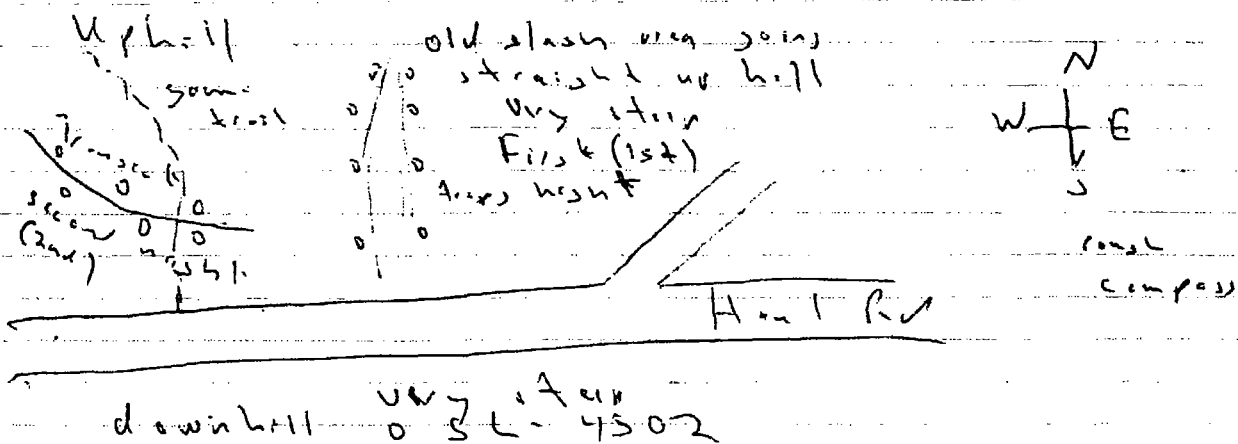 Uphill
game trail
Transect
second (2nd) night
old slash area going
straight up hill
very steep
First (1st)
traps night
N
W E
S
rough
compass
Haul Rd
very steep
downhill